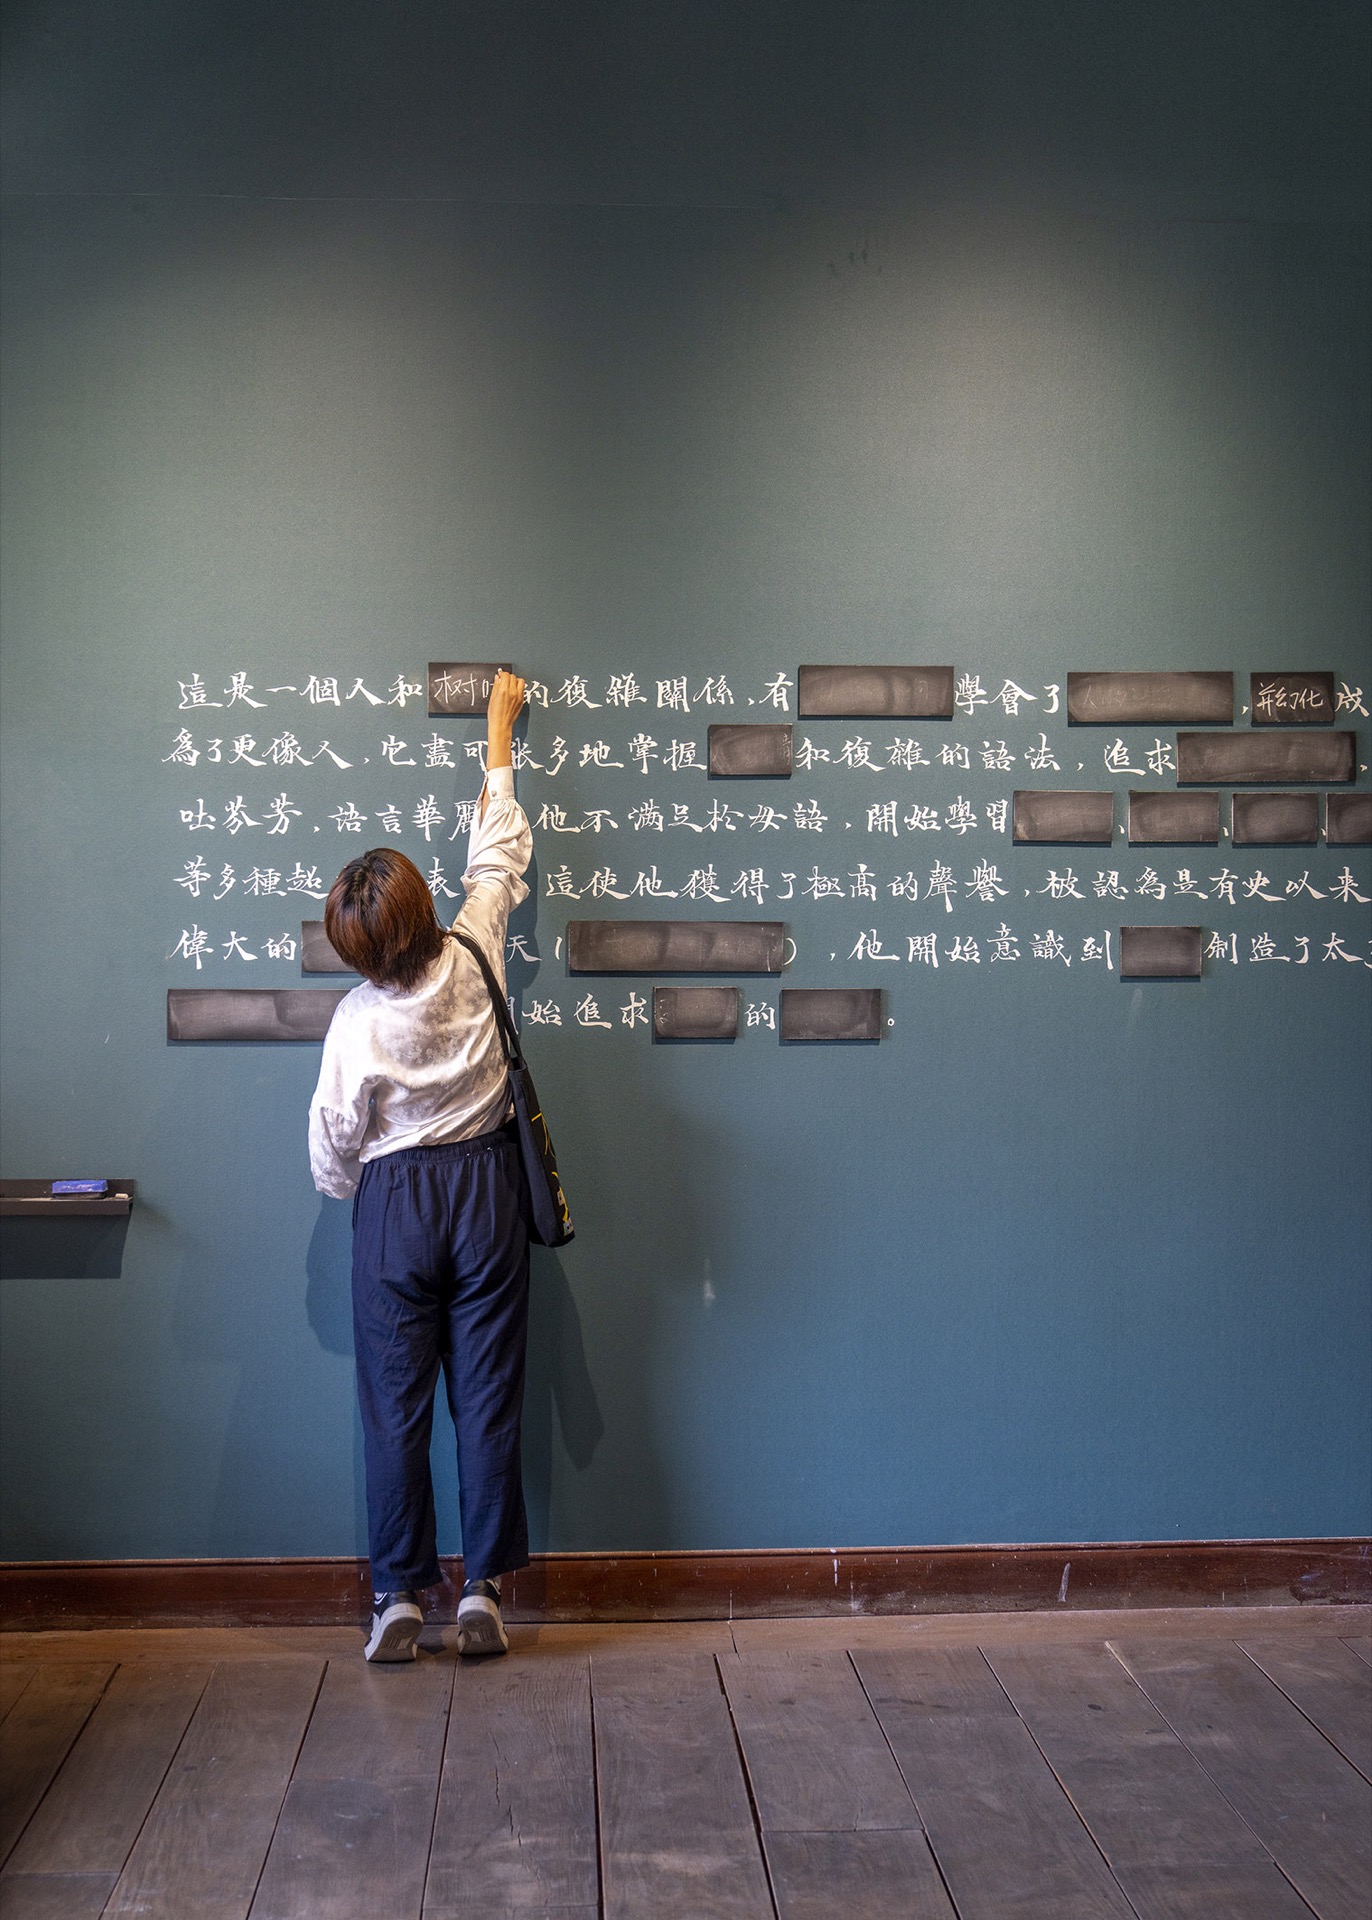 這是一個人和 树 的復雜關係,有 學會了 ,并幻化 成
為了更像人,它盡可 多地掌握 和復雜的語法,追求 ,
吐芬芳,語言華麗 他不滿足於母語,開始學習 、 、 、
等多種超 表 這使他獲得了極高的聲譽,被認為是有史以来
偉大的 天( ),他開始意識到 創造了太
始追求 的 。